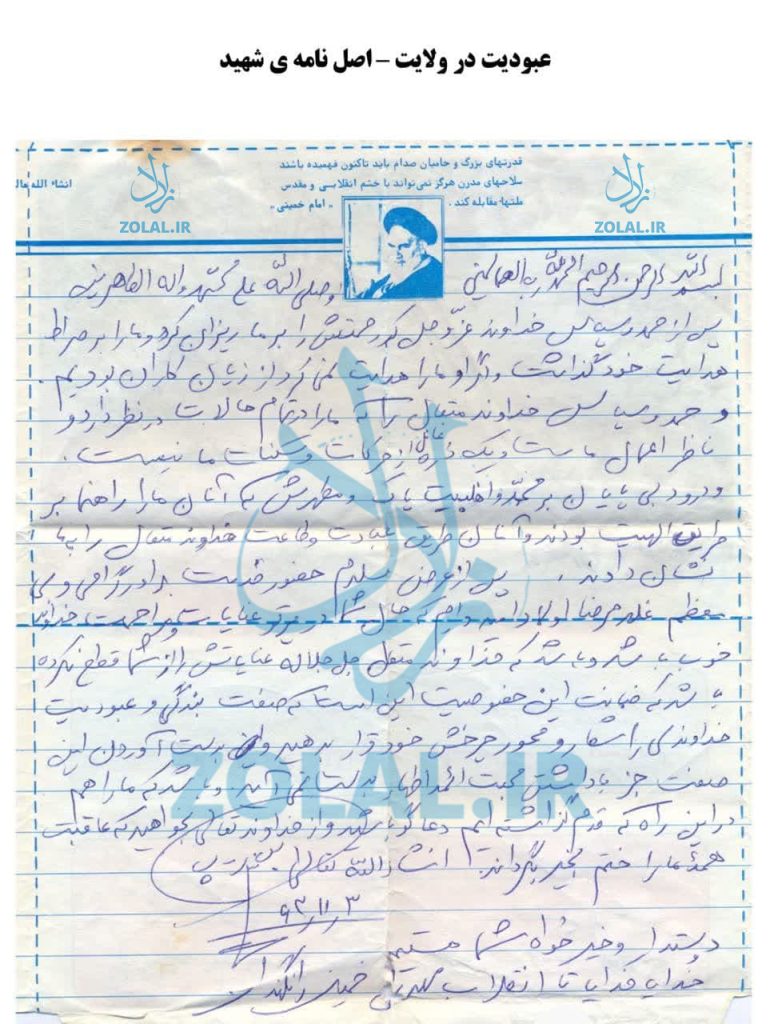 عبودیت در ولایت – اصل نامه ی شهید
قدرتهای بزرگ و حامیان صدام باید تاکنون فهمیده باشند
سلاحهای مدرن هرگز نمی‌تواند با خشم انقلابی و مقدس
ملتها مقابله کند. «امام خمینی»
انشاء الله
زلال
ZOLAL.IR
زلال
ZOLAL.IR
بسم الله الرحمن الرحیم الحمدلله رب العالمین وصلی الله علی محمد واله الطاهرین
پس از حمد و سپاس خداوند عزّوجل که رحمتش را بر ما ریزان کرد و ما را بر صراط
هدایت خود گذاشت و اگر او ما را هدایت نمی کرد از زیان کاران بودیم.
و حمد و سپاس خداوند متعال را که ما را در تمام حالات در نظر دارد و
ناظر اعمال ماست و یک ذره غافل از حرکات و سکنات ما نیست.
و درود بی پایان بر محمد و اهلبیت پاک و مطهرش که آنان ما را راهنما بر
طریق الهیت بودند و آنان طریق عبادت و طاعت خداوند متعال را بما
نشان دادند. پس از عرض سلام حضور خدمت برادر گرامی و
معظم غلامرضا اولا امید دارم که حال شما در پرتو عنایات و مراحمت خداوند
خوب باشد و باشد که خداوند متعال جل جلاله عنایاتش را از شما قطع نکرده
باشد که ضمانت این خصوصیت این است که صفت بندگی و عبودیت
خداوندی را شعار و محور چرخش خود قرار بدهید و بدست آوردن این
صفت جز با داشتن محبت ائمه اطهار بدست نمی آید. و باشد که ما را هم
در این راه که قدم گزاشته ایم دعا گو باشید و از خداوند تعالی بخواهید که عاقبت
همهٔ ما را ختم بخیر بگرداند. انشاءالله تعالی
۶۳/۱۱/۳
دوستدار و خیرخواه شما هستیم
خدایا خدایا تا انقلاب مهدی خمینی را نگهدار
زلال
ZOLAL.IR